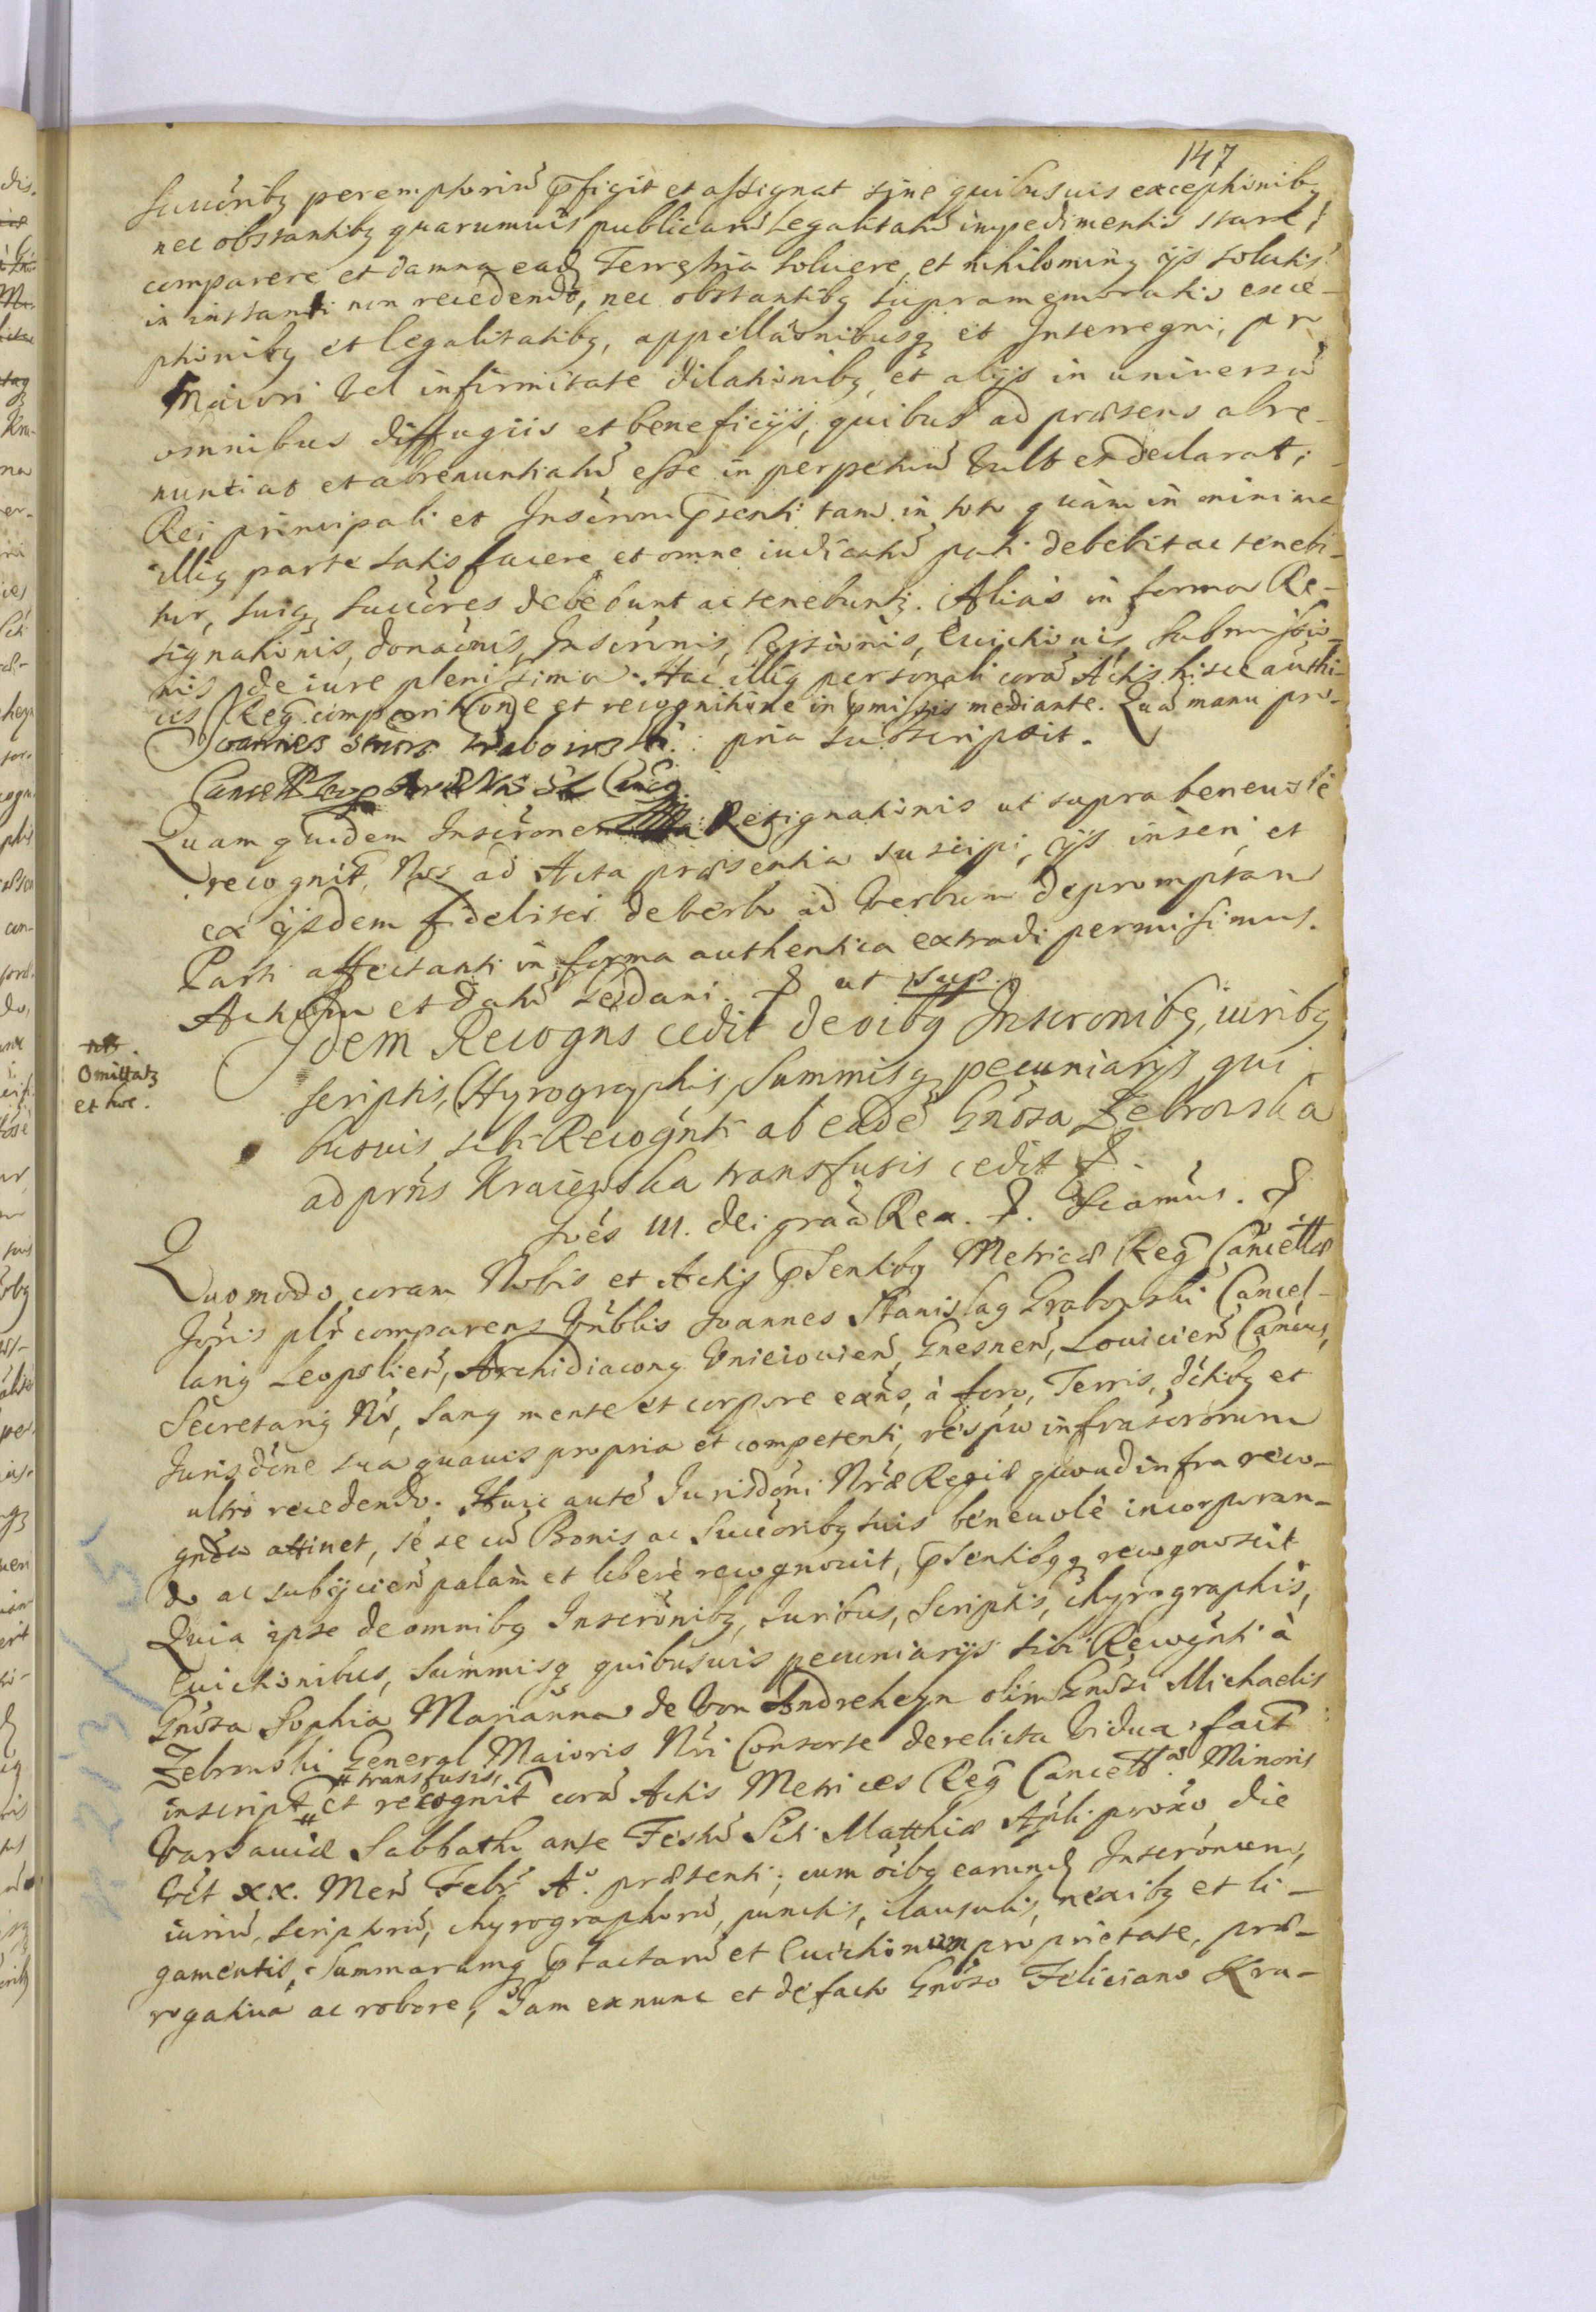 147
Succôribq peremptoriũ p̄figit et assignat sine quibusuis exceptionibq
nec obstantibq quarumuis publicarũ legalitatũ impedimentis stare,
comparere et damna eadq Terrestria soluere, et nihilominq ijs solutis
in instanti non recedendo, nec obstantibq supramemoratis exce-
ptionibq et legalitatibq, appellãonibusq et Interregni, pr
Maiori vel infirmitate dilationibq, et alijs in uniuersũ
omnibus diffugiis et beneficijs, quibus ad præsens abre-
nuntiat et abrenuntiatũ esse in perpetuũ vult et declarat;
Rei principali et Inscrõni p̄senti tam in toto quàm in minima
illiq parte satisfacere et omne iudicatũ pati debebit ac tenebi-
tur, suiq Succôres debebunt ac tenebuntq. Alias in forma Re-
signationis, donaõnis, Inscrõnis, Cessionis, Euictionis, Submissio-
nis de iure plenissima. Hac illiq personali corã Actis hisce authẽ-
cis Reg. comparitione et recognitione in p̄missis mediante. Quã manu pro-
Joannes Stnisl. Grabowski pria subscripsit.
Quam quidem Inscrõnem Resignationis ut supra beneuole
recognit̃, Nos ad Acta præsentia suscipi, ijs inseri, et
ex ijsdem fideliter de verbo ad verbum depromptam
Parti affectanti in forma authentica extradi permisimus.
Actum et datũ Gedani. ut sup.
nB.
Omittatq
et hoc.
Idem Recogns cedit de oibq Inscronibq, iuribq
scriptis, Chyrographis, Summisq pecuniarijs qui
busuis, sibi Recognti ab eadẽ Gnosa Zebrowska
ad prns Kraiewska transfusis cedit
Joẽs III. dei graã Rex. Scãmus.
Quomodo coram Nobis et Actis p̄sentibq Metricæ Reg Cancellæ
Joris plr̃ comparens Vnblis Joannes Stanislaq Grabowski Cancel-
lariq Leopolieñ, Archidiaconq Vnieiouieñ, Gnesneñ, Louicieñ Cancus,
Secretariq Nr̃, Sanq mente et corpore exñs, à foro, Terris, dictibq et
Jurisdõne sua quauis propria et competenti, respu infrascronum
ultrò recedendo. Huic autẽ Jurisdõni Nræ Regiæ quoad infra reco-
gndu attinet, sẽ se cũ Bonis ac Succôribq suis beneuolè incorporan-
do ac subijcieñ palàm et liberè recognouit, p̄sentibqq recognoscit
Quia ipse de omnibq Inscrõnibq, Juribus, Scriptis, chyrographis,
Euictionibus, Summisq quibusuis pecuniarijs sibi Recognti à
Gnosa Sophia Marianna de Von Andreheyn olim Gnosi Michaelis
Zebrowski General Maioris Nri Consorte derelicta Vidua, fact
inscript # et recognit corã Actis Metrices Reg Cancellæ Minoris
# transfusis,
Varsauiæ Sabbatho ante Festũ Scti Matthiæ Apli proxo die
Vct xx. Meñ Febr̃ A.o præsenti; cum oibq earundq Inscronum,
iuriũ, scriptorũ, chyrographorũ, punctis, clausulis, nexibq et li-
gamentis, Summarumq p̄tactarũ et Euictionum proprietate, præ-
rogatiua ac robore, Jam exnunc et defacto Gnoso Feliciano Kra-